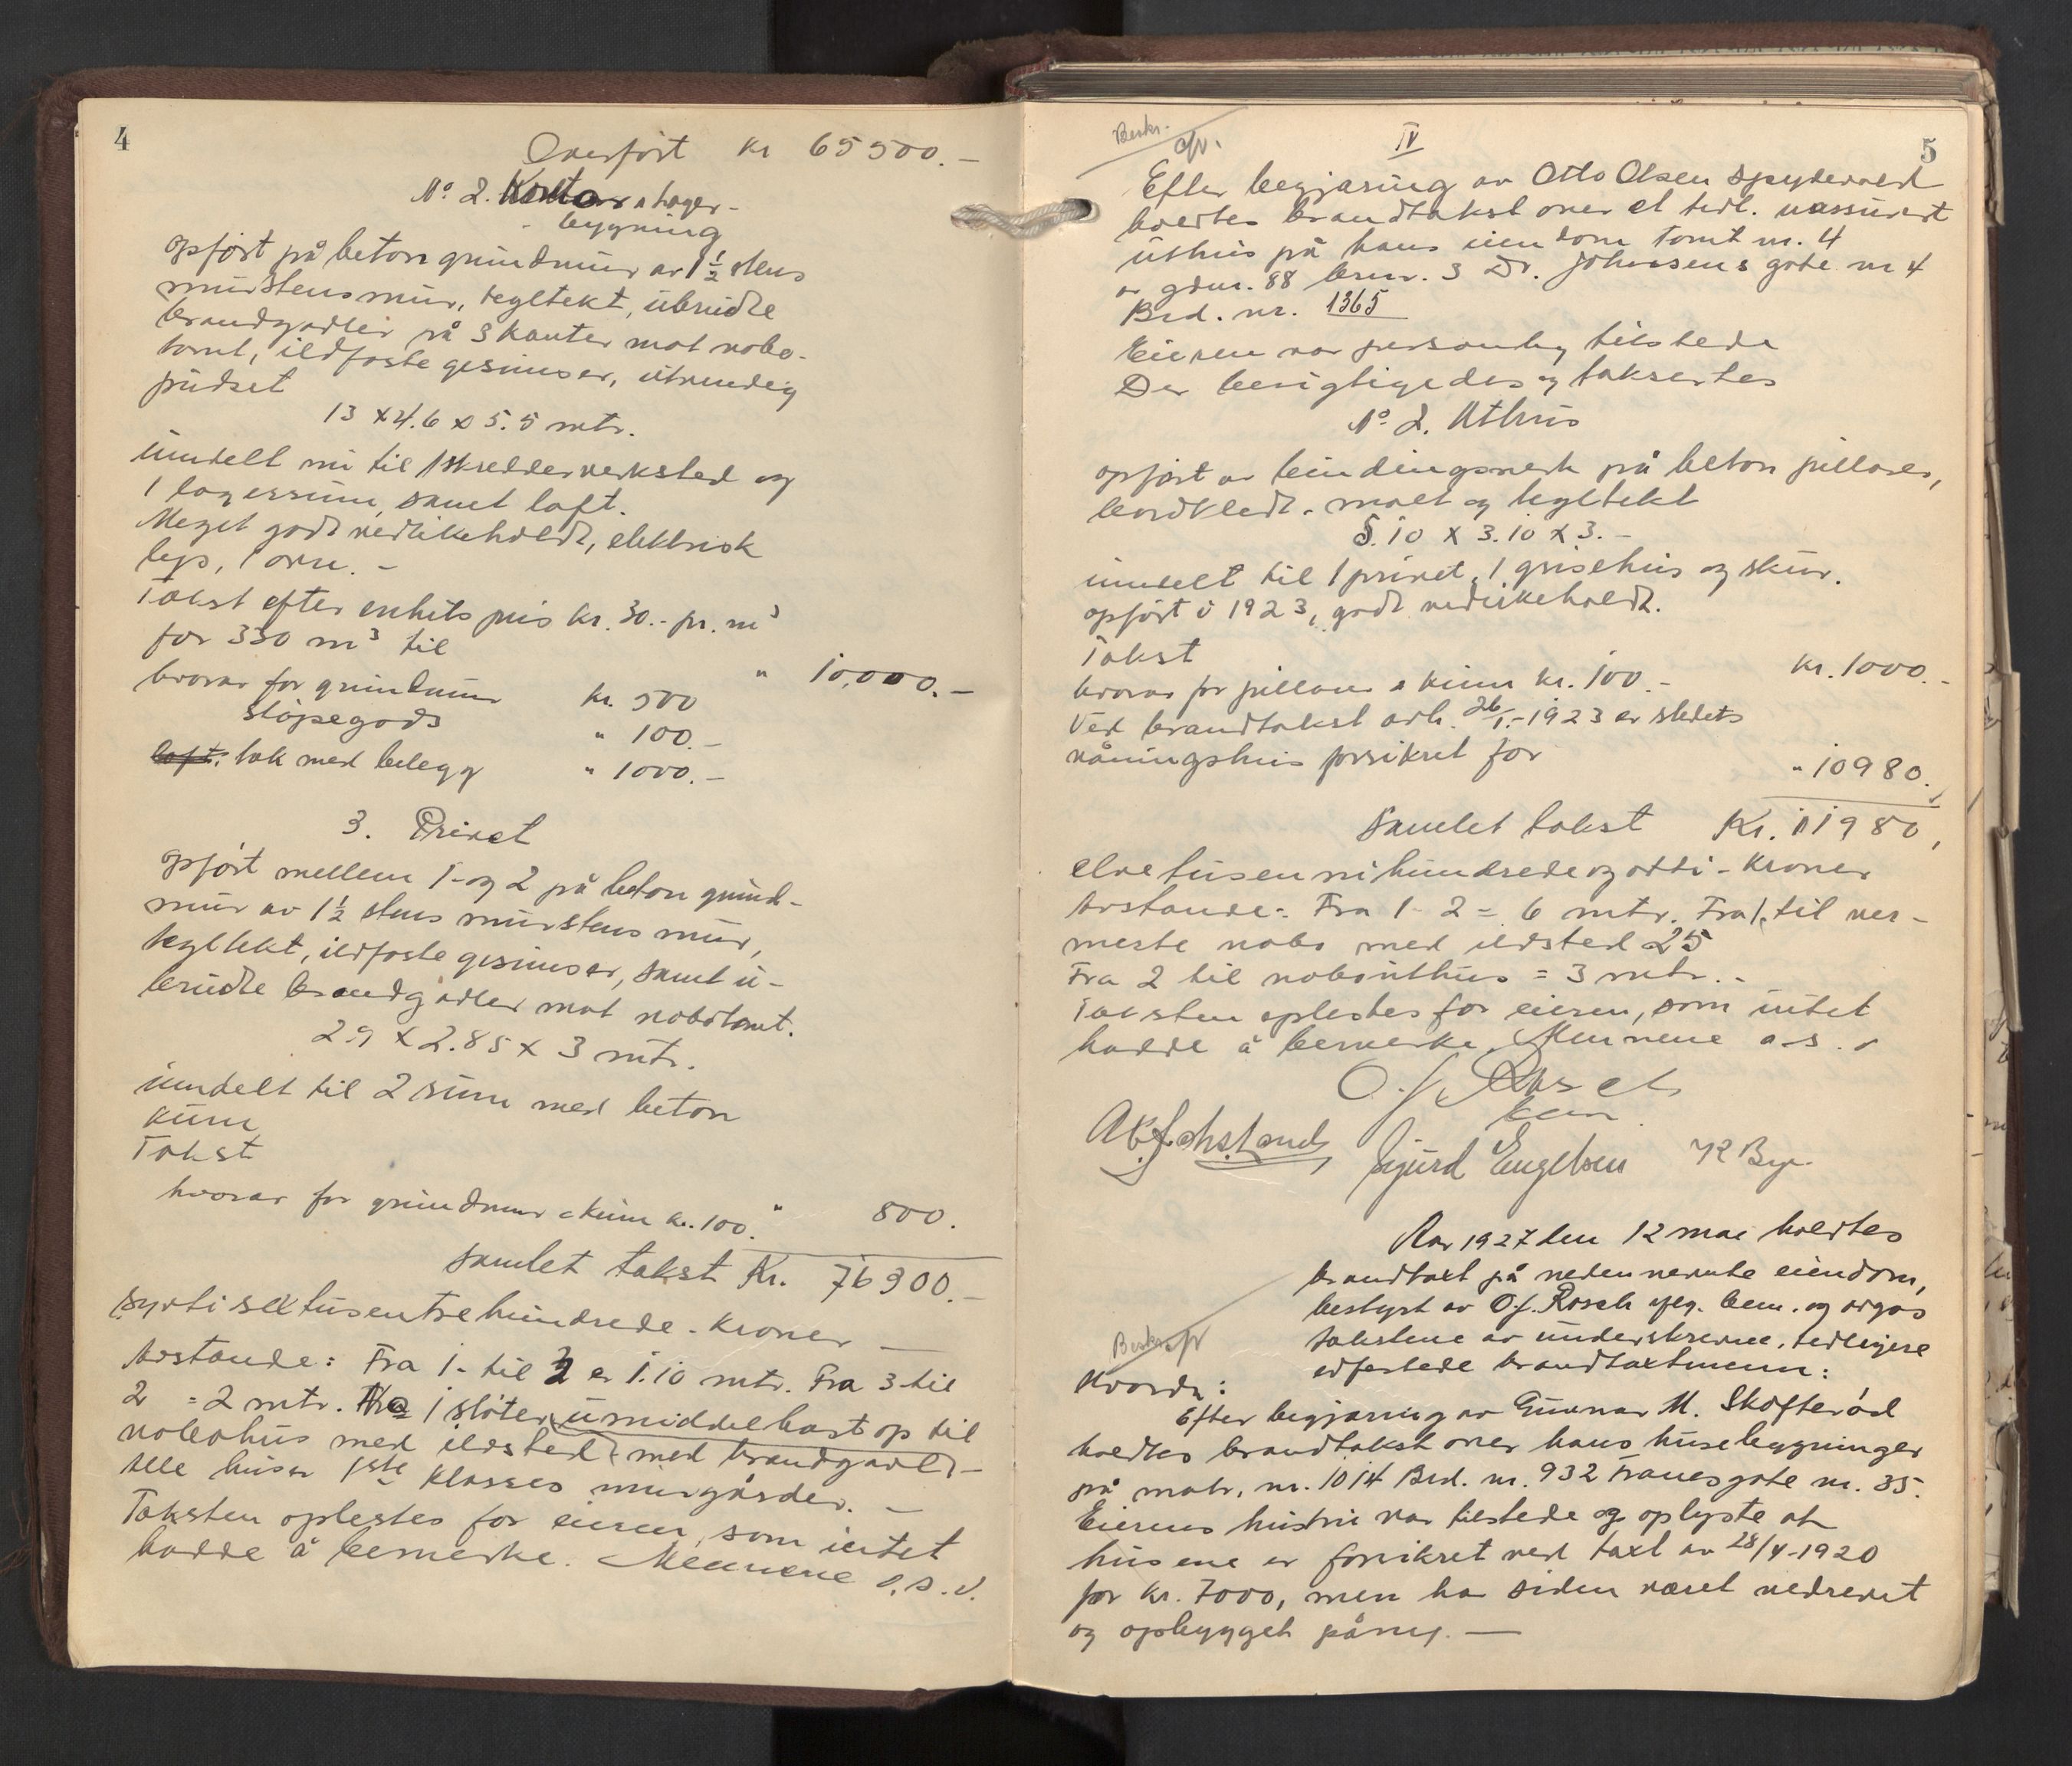 4
Overført kr 65500.-
No 2. Kontor & lager-
bygning
opført på beton grundmur av 1½ stens
murstens mur, tegltekt, ubrudte
brandgavler på 3 kanter mot nabo-
tomt, ildfaste gesimser, utvendig
pudset
13 x 4.6 x 5.5 mtr.
inndelt nu til 1 skredderverksted og
1 lagerrum, samt loft.
Meget godt vedlikeholdt, elektrisk
lys, 1 ovn. -
Takst efter enhets pris kr. 30.- pr. m³
for 330 m³ til " 10.000.-
hvorav for grundmur kr. 500
støpegods " 100.-
tak med belegg " 1000.-
3. Privet
opført mellem 1- og 2 på beton grund-
mur av 1½ stens murstens mur,
tegltekt, ildfaste gesimser, samt u-
brudte brandgavler mot nabotomt.
2.9 x 2.85 x 3 mtr.
inndelt til 2 rum med beton
kum
Takst
hvorav for grundmur & kum kr. 100. " 800.
Samlet takst Kr. 76300.-
syttisekstusentrehundrede - Kroner
Avstande: Fra 1- til 2 er 1.10 mtr. Fra 3 til
2 = 2 mtr. Fra 1 støter umiddelbart op til
nabohus med ildsted med brandgavl -
Alle huser 1ste klasses murgårder. -
Taksten oplestes for eieren, som intet
hadde å bemerke. Mennene o.s.v.
5
Beskr.
afv.
IV
Efter begjæring av Otto Olsen Spydevold
holdtes brandtakst over et tidl. uassurert
uthus på hans eiendom tomt nr. 4
av gdnr. 88 brnr. 3 Dr. Johnsens gate nr 4
Brd. nr. 1365
Eieren var personlig tilstede
Der besigtigedes og taksertes
No 2. Uthus
opført av bindingsverk på beton pillarer,
bordkledt, malt og tegltekt
5.10 x 3.10 x 3.-
inndelt til 1 privet, 1 grisehus og skur.
opført i 1923, godt vedlikeholdt.
Takst kr. 1000.-
hvorav for pillarer & kum kr. 100.-
Ved brandtakst avh. 26/1.-1923 er stedets
våningshus forsikret for " 10980.
Samlet takst Kr. 11980,
elvetusennihundredeogotti - Kroner
Avstande: Fra 1 - 2 = 6 mtr. Fra 1. til nær-
meste nabo med ildsted 25
Fra 2 til nabouthus = 3 mtr. -
Taksten oplestes for eieren, som intet
hadde å bemerke. Mennene o.s.v
O. J. Rosch
bem.
Sigurd Engelsen K Bye
Aar 1927 den 12 mai holdtes
brandtaxt på nedennevnte eiendom,
bestyrt av O. J. Rosch bem. og avgas
takstene av underskrevne, tidligere
edfæstede brandtaxtmenn:
Beskr. afv
Hvorda:
Efter begjæring av Gunnar M. Skofterød
holdtes brandtakst over hans husebygninger
på matr. nr. 1014 Brd. nr. 932 Tranesgate nr. 35.
Eierens hustru var tilstede og oplyste at
husene er forsikret ved taxt av 28/4-1920
for kr. 7000, men har siden været nedrevet
og opbygget påny. —